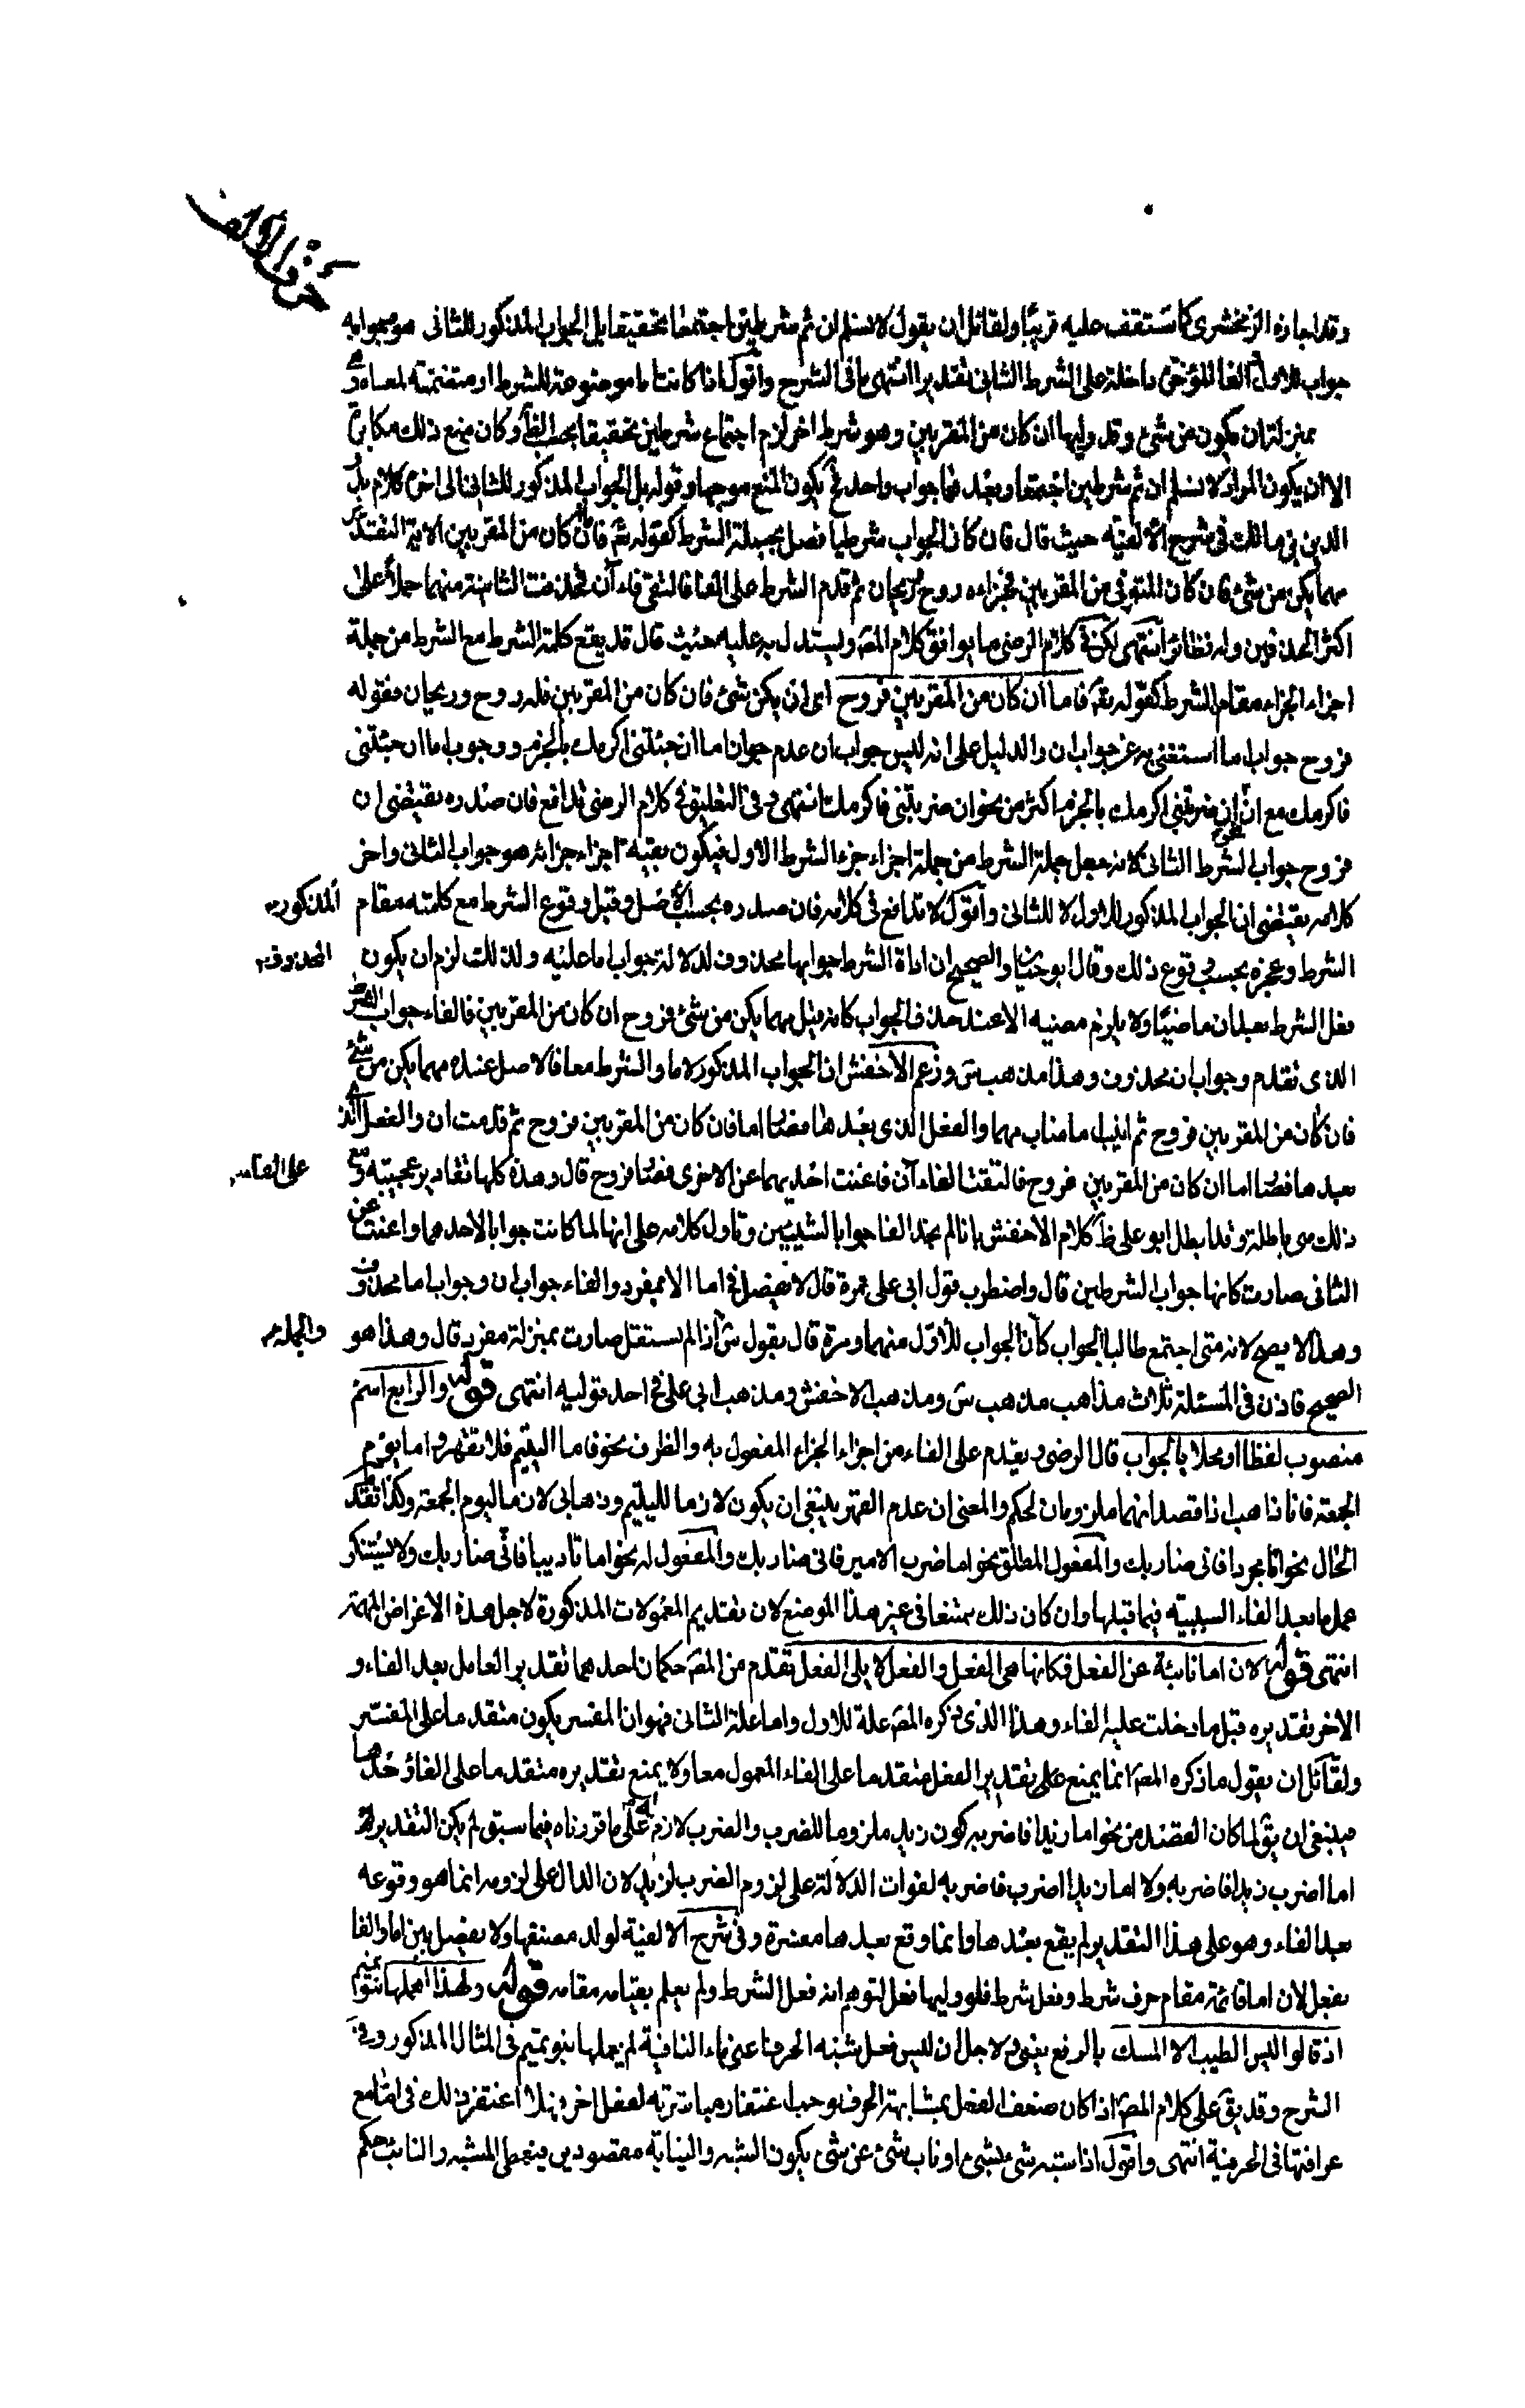 حرف الالف
وقد اجازه الزمخشرى كما ستقف عليه قريبا ولقائل ان يقول لا نسلم ان ثم شرطين اجتمعا تحقيقا بل الجواب المذكور للثانى هو وجوابه
جواب للاول الفا المؤخرة داخلة على الشرط الثانى تقديرا انتهى ما فى الشرح واقول اذا كانت اما موضوعة للشرط او متضمنة لمعناه
بمنزلة ان يكون من شىء وقد وليها ان كان من المقربين وهو شرط اخر لزم اجتماع شرطين تحقيقا بحسب الظ وكان منع ذلك مكابرة
الا ان يكون المراد لا نسلم ان ثم شرطين اجتمعا وبعدهما جواب واحد فح يكون المنع موجها وقوله بل الجواب المذكور للثانى الى اخره كلام بدر
الدين بن مالك فى شرح الالفية حيث قال فان كان الجواب شرطيا فصل بجملة الشرط كقوله تع فاما ان كان من المقربين الاية التقدير
مهما يكن من شىء فان كان المتوفى من المقربين فجزاءه روح وريحان ثم قدم الشرط على الفا فالتقى فاءان فحذفت الثانية منهما حملا على
اكثر الحذفين وله نظائر انتهى لكن فى كلام الرضى ما يوافق كلام المصـ ويستدل به عليه حيث قال قد يقع كلمة الشرط مع الشرط من جملة
اجزاء الجزاء مقام الشرط كقوله تع فاما ان كان من المقربين فروح اى ان يكن شىء فان كان من المقربين فله روح وريحان فقوله
فروح جواب اما استغنى به عن جواب ان والدليل على انه ليس جواب ان عدم جواز اما ان جئتنى اكرمك بالجزم ووجوب اما ان جئتنى
فاكرمك مع ان ان ضربتنى اكرمك بالجزم اكثر من نحو ان ضربتنى فاكرمك انتهى وفى التعليق فى كلام الرضى تدافع فان صدره يقتضى ان
فروح جواب الشرط الثانى لانه جعل جملة الشرط من جملة اجزاء جزء الشرط الاول فيكون بقية اجزاء جزائه هو جواب الثانى واخر
كلامه يقتضى ان الجواب المذكور للاول لا للثانى واقول لا تدافع فى كلامه فان صدره بحسب الاصل وقبل وقوع الشرط مع كلمته مقام المذكور
الشرط وعجزه بحسب وقوع ذلك وقال ابو حيان والصحيح ان اداة الشرط جوابها محذوف لدلالة جواب اما عليه ولذلك لزم ان يكون المحذوف
فعل الشرط بعد ان ماضيا ولا يلزم مضيه الا عند حذف الجواب كانه قيل مهما يكن من شىء فروح ان كان من المقربين فالفاء جواب الشرط
الذى تقدم وجواب ان محذوف وهذا مذهب س وزعم الاخفش ان الجواب المذكور لاما والشرط معا فالاصل عنده مهما يكن من شىء
فان كان من المقربين فروح ثم انيب اما مناب مهما والفعل الذى بعدها فصار اما فان كان من المقربين فروح ثم قدمت ان والفعل الذى
بعدها فصار اما ان كان من المقربين فروح فالتقت الفاءان فاغنت احديهما عن الاخرى فصار فروح قال وهذه كلها تقادير عجيبة ومع على الفاء
ذلك هى باطلة وقد ابطل ابو على ظ كلام الاخفش بانا لم نجد الفا جوابا لشيئين وتاول كلامه على انها لما كانت جوابا لاحدهما واغنت عن
الثانى صارت كانها جواب الشرطين قال واضطرب قول ابى على فمرة قال لا يفصل فى اما الا بمفرد والفاء جواب ان وجواب اما محذوف
وهذا لا يصح لانه متى اجتمع طالبا الجواب كان الجواب للاول منهما ومرة قال بقول س اذا لم يستقل صارت بمنزلة مفرد قال وهذا هو والجملة
الصحيح فاذن فى المسئلة ثلاث مذاهب مذهب س ومذهب الاخفش ومذهب ابى على فى احد قوليه انتهى قوله والرابع اسم
منصوب لفظا او محلا بالجواب قال الرضى ويقدم على الفاء من اجزاء الجزاء المفعول به والظرف نحو فاما اليتيم فلا تقهر واما يوم
الجمعة فانا ذاهب اذا قصد انهما ملزومان لحكم والمعنى ان عدم القهر ينبغى ان يكون لازما لليتيم وذهابى لازما ليوم الجمعة وكذا تقدم
الحال نحو اما مجردا فانى ضاربك والمفعول المطلق نحو اما ضرب الامير فانى ضاربك والمفعول له نحو اما تاديبا فانى ضاربك ولا يستنكر
عمل ما بعد الفاء السببية فيما قبلها وان كان ذلك ممتنعا فى غير هذا الموضع لان تقديم المعمولات المذكورة لاجل هذه الاغراض المهمة
انتهى قوله لان اما نائبة عن الفعل فكانها هى الفعل والفعل لا يلى الفعل تقدم من المصـ حكمان احدهما تقدير العامل بعد الفاء و
الاخر تقديره قبل ما دخلت عليه الفاء وهذا الذى ذكره المصـ علة للاول واما علة الثانى فهو ان المفسر يكون متقدما على المفسر
ولقائل ان يقول ما ذكره المصـ انما يمنع على تقدير الفعل متقدما على الفاء المعمول معا ولا يمنع تقديره متقدما على الفا وحدها
فينبغى ان يق لما كان القصد من نحو اما زيدا فاضربه كون زيد ملزوما للضرب والضرب لازم له على ما قررناه فيما سبق لم يكن التقدير
اما اضرب زيدا فاضربه ولا اما زيدا اضرب فاضربه لفوات الدلالة على لزوم الضرب لزيد لان الدال على لزومه انما هو وقوعه
بعد الفاء وهو على هذا التقدير لم يقع بعدها وانما وقع بعدها مفسره وفى شرح الالفية لولد مصنفها ولا يفصل بين اما والفا
بفعل لان اما قائمة مقام حرف شرط وفعل شرط فلو وليها فعل لتوهم انه فعل الشرط ولم يعلم بقيامه مقامه قوله ولهذا اهملها بنو تميم
اذ قالوا ليس الطيب الا المسك بالرفع يعنى ولاجل ان ليس فعل شبه الحرف اعنى ماء النافية لم يعملها بنو تميم فى المثال المذكور وفى
الشرح وقد يق على كلام المصـ اذا كان ضعف الفعل بمشابهة الحرف يوجب اغتفار مباشرته لفعل اخر فهلا اغتفر ذلك فى اما مع
عرافتها فى الحرفية انتهى واقول اذا شبه شىء بشىء او ناب شىء عن شىء يكون الشبه والنيابة مقصودين فيعطى المشبه والنائب حكم